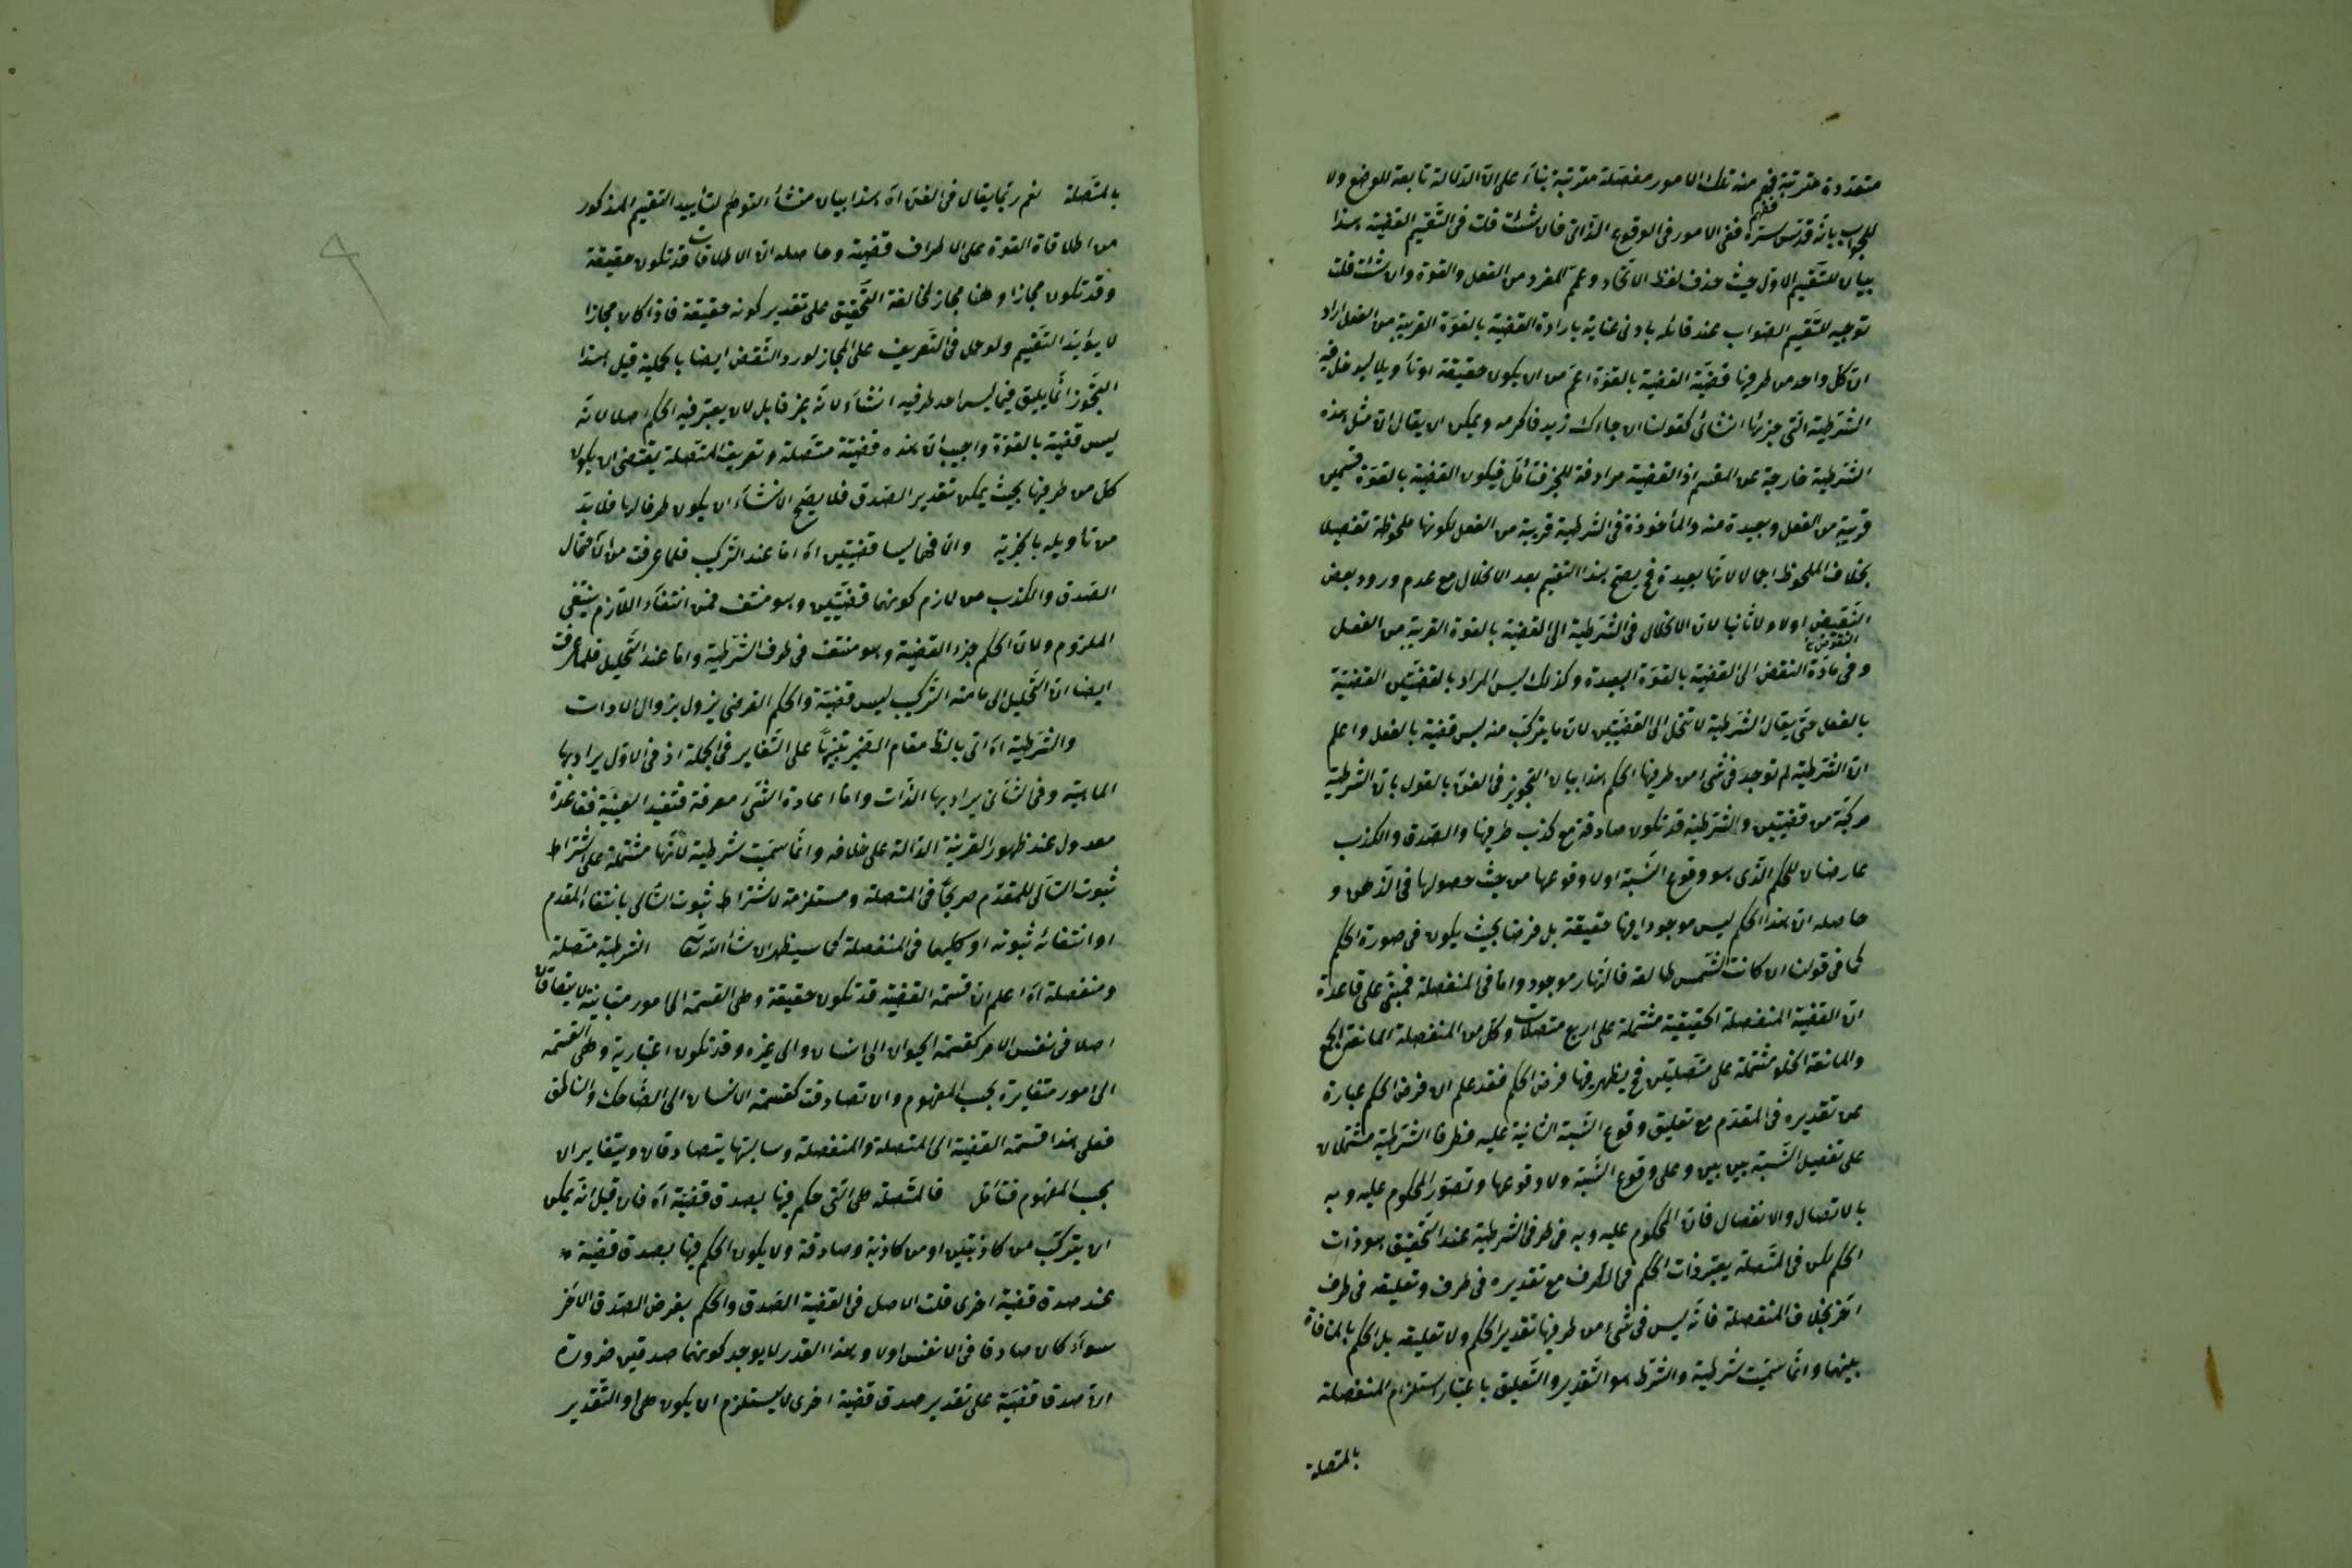 متعددة مترتبة فيهم منه تلك الامور مفصلة مترتبة بناء على ان الدلالة تابعة للوضع ولا
للمجاب بانه قدس سره ففى الامور فى الوقوع الذاتى فان شئت قلت فى التقسيم القضية هذا
بيان للتقسيم الاول حيث حذف لفظ الاتحاد وعمم المفرد من الفعل والقوة وان شئت قلت
توجيه للتقسيم الصواب عند قائله بادنى عناية بارادة القضية بالقوة القريبة من الفعل اراد
ان كل واحد من طرفيها قضية القضية بالقوة اعم من ان يكون حقيقة او تأويلا ليدخل فيه
الشرطية التى جزئها انشائى كقولنا ان جاءك زيد فاكرمه ويمكن ان يقال ان مثل هذه
الشرطية خارجة عن المقسم اذ القضية مرادفة للخبر فتأمل فيكون القضية بالقوة قسمين
قريبة من الفعل وبعيدة منه والمأخوذة فى الشرطية قريبة من الفعل لكونها ملحوظة تفصيلا
بخلاف الملحوظ اجمالا لانها بعيدة فح يصح هذا التقسيم بعد الانحلال مع عدم ورود بعض
النقيض اولا ولا ثانيا لان الانحلال فى الشرطية الى القضية بالقوة القريبة من الفعل
وفى مادة النقض الى القضية بالقوة البعيدة وكذلك ليس المراد بالقضيتين القضية
بالفعل حتى يقال الشرطية لا تنحل الى القضيتين لان ما يتركب منه ليس قضية بالفعل واعلم
ان الشرطية لم توجد فى شئ من طرفيها الحكم هذا بيان التجويز فى الفن بالقول بان الشرطية
مركبة من قضيتين والشرطية قد تكون صادقة مع كذب طرفيها والصدق والكذب
عارضان للحكم الذى هو وقوع النسبة او لا وقوعها من حيث حصولها فى الذهن و
حاصله ان هذا الحكم ليس موجودا فيها حقيقة بل فرضا بحيث يكون فى صورة الحكم
كما فى قولنا ان كانت الشمس طالعة فالنهار موجود واما فى المنفصلة فمبنى على قاعدة
ان القضية المنفصلة الحقيقية مشتملة على اربع متصلات وكل من المنفصلة المانعة الجمع
والمانعة الخلو مشتملة على متصلتين فح يظهر فيها فرض الحكم فقد علم ان فرض الحكم عبارة
عن تقديره فى المقدم مع تعليق وقوع النسبة الثانية عليه فطرفا الشرطية مشتملان
على تفصيل النسبة بين بين وعلى وقوع النسبة ولا وقوعها وتصور المحكوم عليه وبه
بالاتصال والانفصال فان المحكوم عليه وبه فى طرفى الشرطية عند التحقيق هو ذات
الحكم لكن فى المتصلة يعتبر ذات الحكم فى الطرف مع تقديره فى طرف وتعليقه فى طرف
آخر بخلاف المنفصلة فانه ليس فى شئ من طرفيها تقدير الحكم ولا تعليقه بل الحكم بالمنافاة
بينهما وانما سميت شرطية والشرط هو التقدير والتعليق باعتبار استلزام المنفصلة
بالمتصلة
بالمتصلة نعم ربما يقال فى الفن اه هذا بيان منشأ التوهم لتأييد التقسيم المذكور
من اطلاقاة القوة على الاطراف قضية وحاصله ان الاطلاقات قد تكون حقيقة
وقد تكون مجازا وهنا مجاز لمخالفة التحقيق على تقدير كونه حقيقة فاذا كان مجازا
لا يؤيد التقسيم ولو حمل فى التعريف على المجاز لورد النقض ايضا بالحملية قيل هذا
التجوز انما يليق فيما ليس احد طرفيه انشاء لانه غير قابل لان يعتبر فيه الحكم اصلا لانه
ليس قضية بالقوة واجيب ان هذه قضية متصلة وتعريف المتصلة يقتضى ان يكون
كل من طرفيها بحيث يمكن تقدير الصدق فلا يصح الانشاء ان يكون طرفا لها فلا بد
من تأويله بالخبرية وان فهما ليسا قضيتين اه اما عند التركيب فلما عرفت من ان احتمال
الصدق والكذب من لازم كونهما قضيتين وهو منتف فمن انتفاء اللازم ينتفى
الملزوم ولان الحكم جزء القضية وهو منتف فى طرف الشرطية واما عند التحليل فلما عرفت
ايضا ان التحليل الى ما منه التركيب ليس قضية والحكم الفرضى يزول بزوال الادات
والشرطية اه اتى بالظ مقام الضمير تنبيها على التغاير فى الجملة اذ فى الاول يراد بها
الماهية وفى الثانى يراد بها الذات واما اعادة الشئ معرفة فتفيد العينية فقاعدة
معدول عند ظهور القرينة الدالة على خلافه وانما سميت شرطية لانها مشتملة على اشتراط
ثبوت التالى للمقدم صريحا فى المتصلة ومستلزمة لاشتراط ثبوت التالى بانتفاء المقدم
او انتفائه ثبوته او كليهما فى المنفصلة كما سيظهر ان شاء الله تعا الشرطية متصلة
ومنفصلة اه اعلم ان قسمة القضية قد تكون حقيقة وهى القسمة الى امور متباينة لا يتصادقان
اصلا فى نفس الامر كقسمة الحيوان الى انسان والى غيره وقد تكون اعتبارية وهى القسمة
الى امور متغايرة بحسب المفهوم وان تصادقت كقسمة الانسان الى الضاحك والناطق
فعلى هذا قسمة القضية الى المتصلة والمنفصلة وسالبتها يتصادقان ويتغايران
بحسب المفهوم فتأمل فالمتصلة هى التى حكم فيها بصدق قضية اه فان قيل انه يمكن
ان يتركب من كاذبتين او من كاذبة وصادقة ولا يكون الحكم فيها بصدق قضية
عند صدق قضية اخرى قلت الاصل فى القضية الصدق والحكم بفرض الصدق الآخر
سواء كان صادقا فى الانفس او لا وبهذا القدر لا يوجد كونهما صدقين ضرورة
ان صدق قضية على تقدير صدق قضية اخرى لا يستلزم ان يكون هى والتقدير